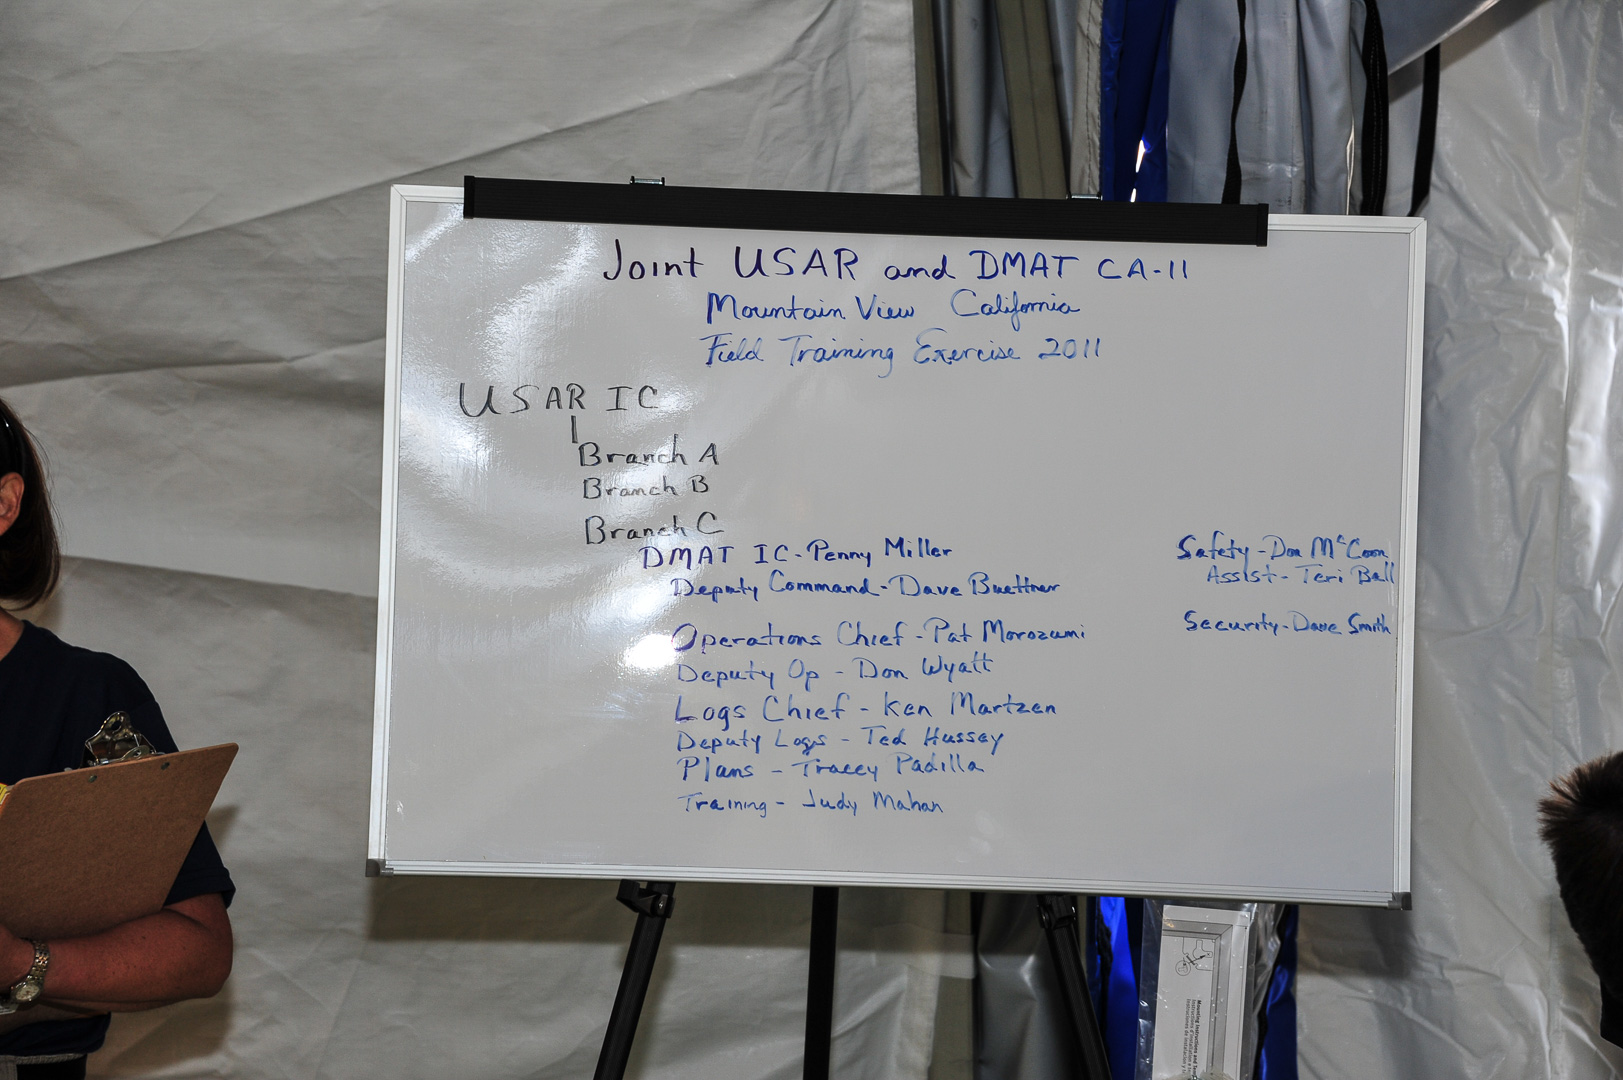 Joint USAR and DMAT CA-11
Mountain View California
Field Training Exercise 2011
USAR IC
Branch A
Branch B
Branch C
DMAT IC-Penny Miller
Deputy Command-Dave Buettner
Operations Chief-Pat Morozumi
Deputy Op - Don Wyatt
Logs Chief - Ken Martzen
Deputy Logs - Ted Hussey
Plans - Tracey Padilla
Training - Judy Mahan
Safety-Don McCoon
Assist-Teri Ball
Security-Dave Smith
Mounting Instructions and
Instructions d'installation
Instrucciones de instalación y